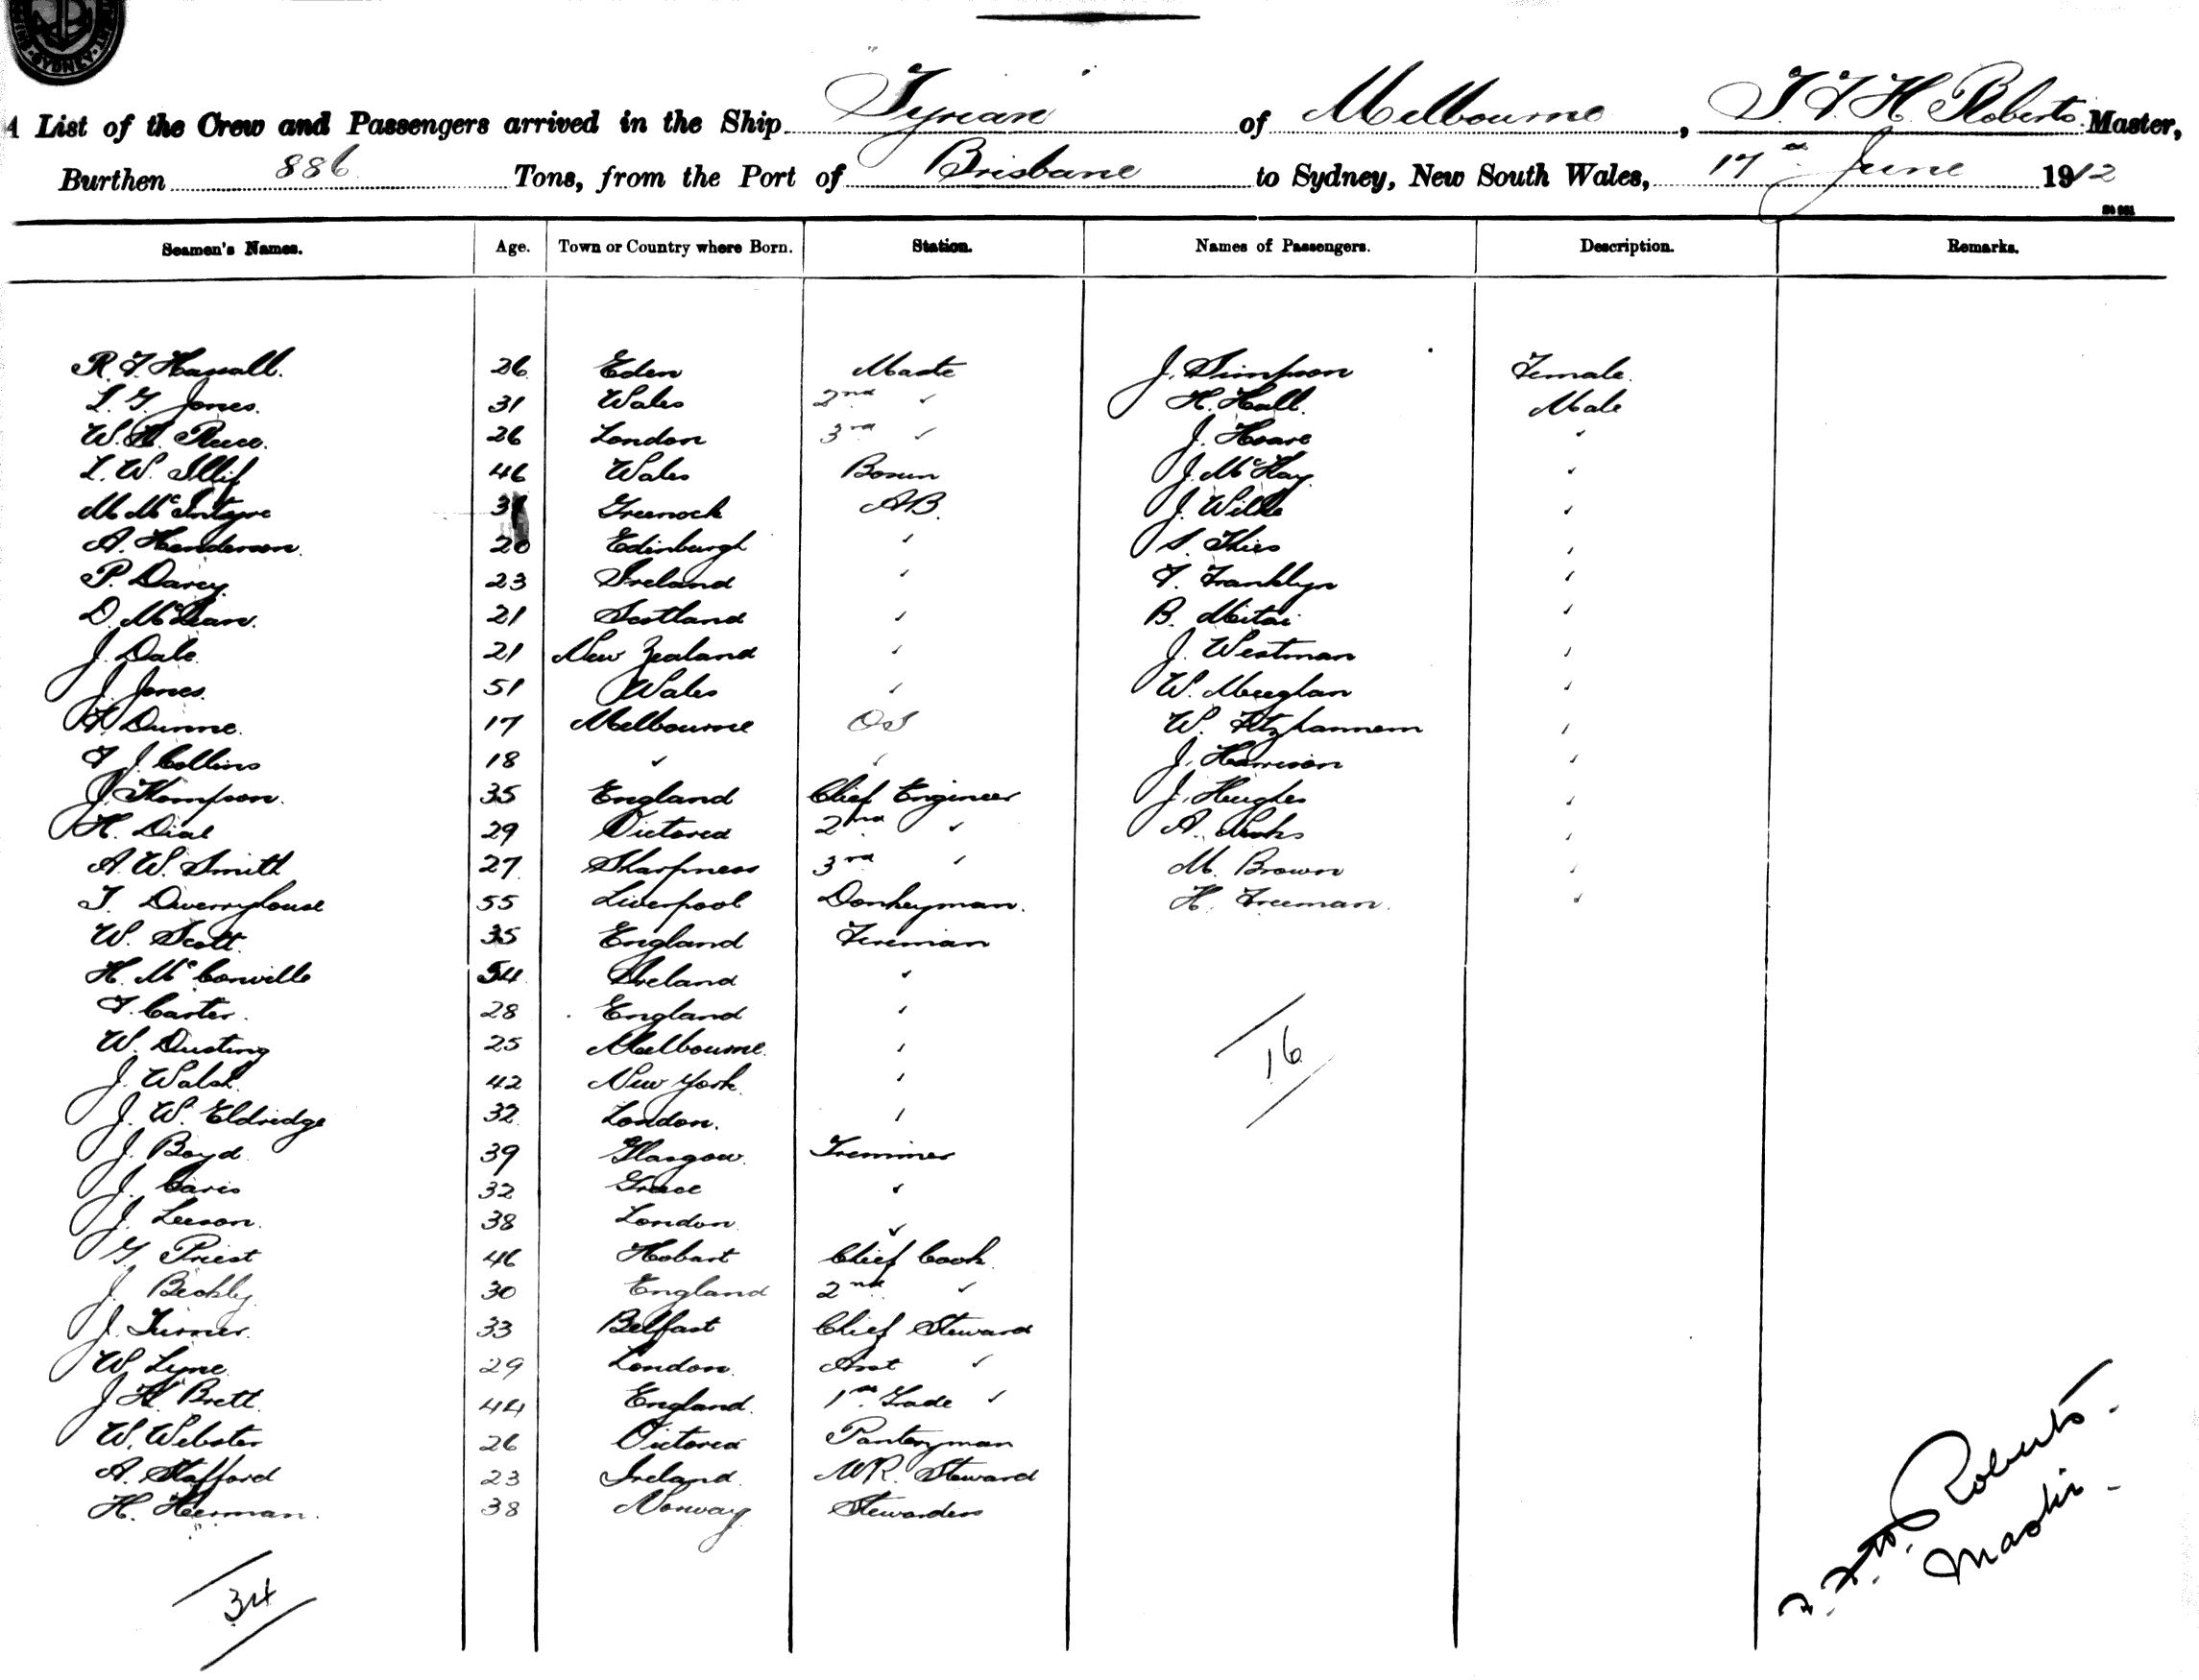 SYDNEY
A List of the Crew and Passengers arrived in the Ship Tyrian of Melbourne, T. F. H. Roberts Master,
Burthen 886 Tons, from the Port of Brisbane to Sydney, New South Wales, 17th June 1912
Seamen's Names. Age. Town or Country where Born. Station. Names of Passengers. Description. Remarks.
R. F. Hassall. 26 Eden Mate J. Simpson Female.
L. G. Jones. 31 Wales 2nd ✓ H. Hall. Male
W. H. 26 London 3rd ✓ J. Hoare ✓
L. W. Illif 46 Wales Bosun J. McHay ✓
M McIntyre Greenock AB. J. Wilke ✓
A. Henderson. 20 Edinburgh ✓ S. ✓
P. Darcy. 23 Ireland ✓ F. Franklyn ✓
D. McLean. 21 Scotland ✓ B. Mitai ✓
J. Dale. 21 New Zealand ✓ J. Westman ✓
J. Jones. 51 Wales ✓ W. Meeghan ✓
Dunne. 17 Melbourne OS W. ✓
F J. Collins 18 ✓ ✓ J. Harrison ✓
J. Thompson. 35 England Chief Engineer J. Hughes ✓
H. Dial 29 Victoria 2nd ✓ A. ✓
A. W. Smith 27. Sharpness 3rd ✓ M. Brown ✓
T. Dwerryhouse 55 Liverpool Donkeyman. H. Freeman. ✓
W. Scott. 35 England Fireman
H. McConville 54 Ireland ✓
F. Carter. 28 England ✓
W. Dusting 25 Melbourne. ✓
J. Walsh. 42 New York ✓
J. W. Eldridge 32 London. ✓
J. Boyd 39 Glasgow. Trimmer
J. Caris 32 ✓
J. Leeson. 38 London. ✓
G. Priest 46 Hobart Chief Cook.
J. Beckly 30 England 2nd ✓
J. Turner. 33 Belfast Chief Steward
W. Lyne 29 London. Asst ✓
J. H. Brett. 44 England. 1st Grade ✓
W. Webster 26 Victoria Pantryman
A. Stafford 23 Ireland. MR. Steward
H. Herman. 38 Norway Stewardess
16
34
T. F. H. Roberts.
Master.